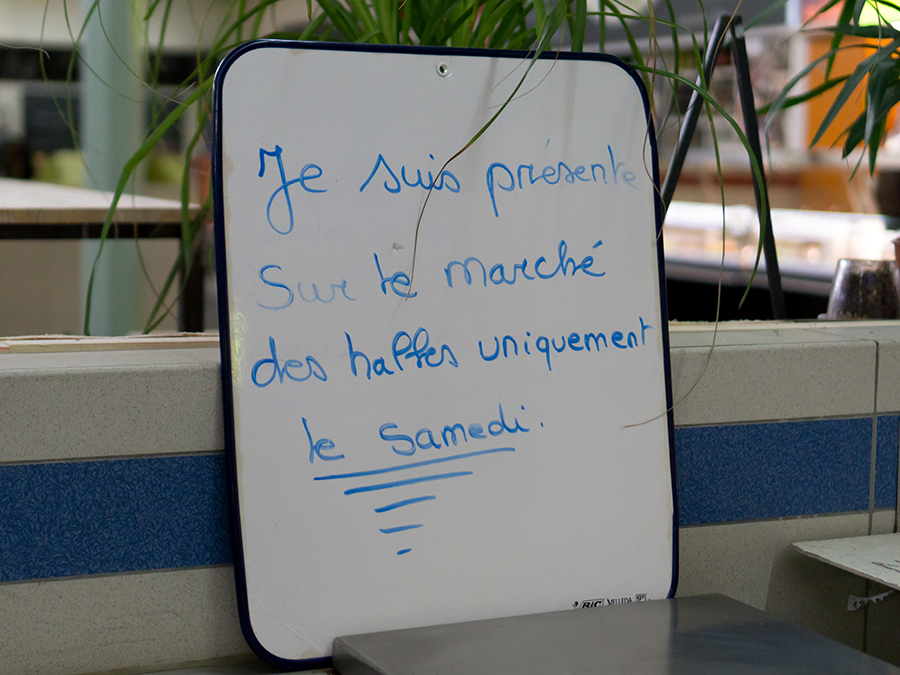 Je suis présente
Sur le marché
des halles uniquement
le Samedi.
BIC VELLEDA